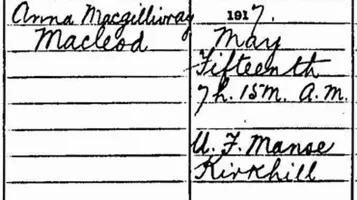 Anna Macgillivray
Macleod
1917.
May
Fifteenth
7h. 15m. A.M.
U. F. Manse
Kirkhill